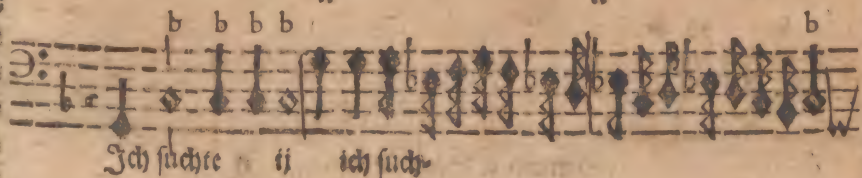 b b b b b
Ich suchte ij ich such-